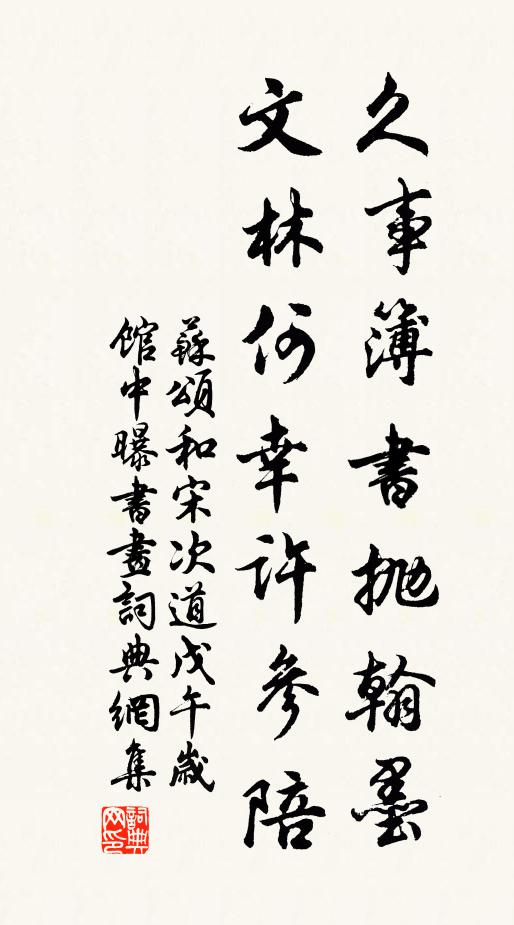 久事簿書抛翰墨
文林何幸許參陪
蘇頌和宋次道戊午歲
館中曝書畫詞典網集
詞典网印